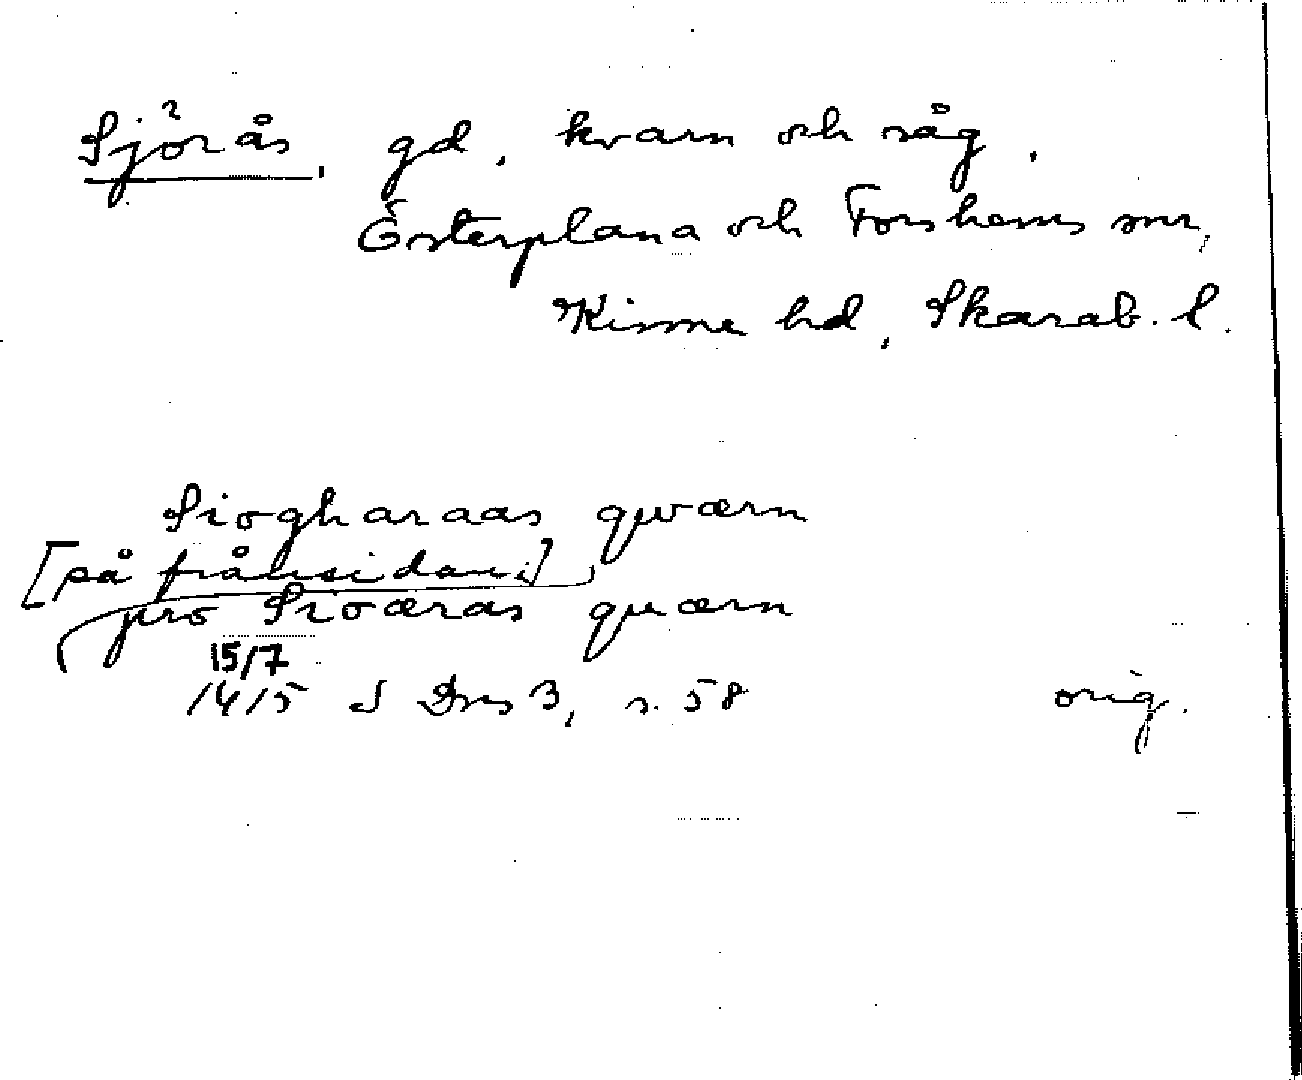 Sjörås, gd, kvarn och såg,
Österplana och Forshems snr,
Kinne hd, Skarab. l.
Siogharaas qwærn
[på frånsidan:]
pro Sioæras quærn
15/7
1415 SDns 3, s. 58 orig.